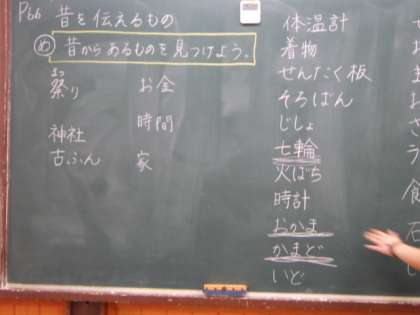 P66 昔を伝えるもの
め 昔からあるものを見つけよう。
まつ
祭り
神社
古ふん
お金
時間
家
体温計
着物
せんたく板
そろばん
じしょ
七輪
火ばち
時計
おかま
かまど
いど